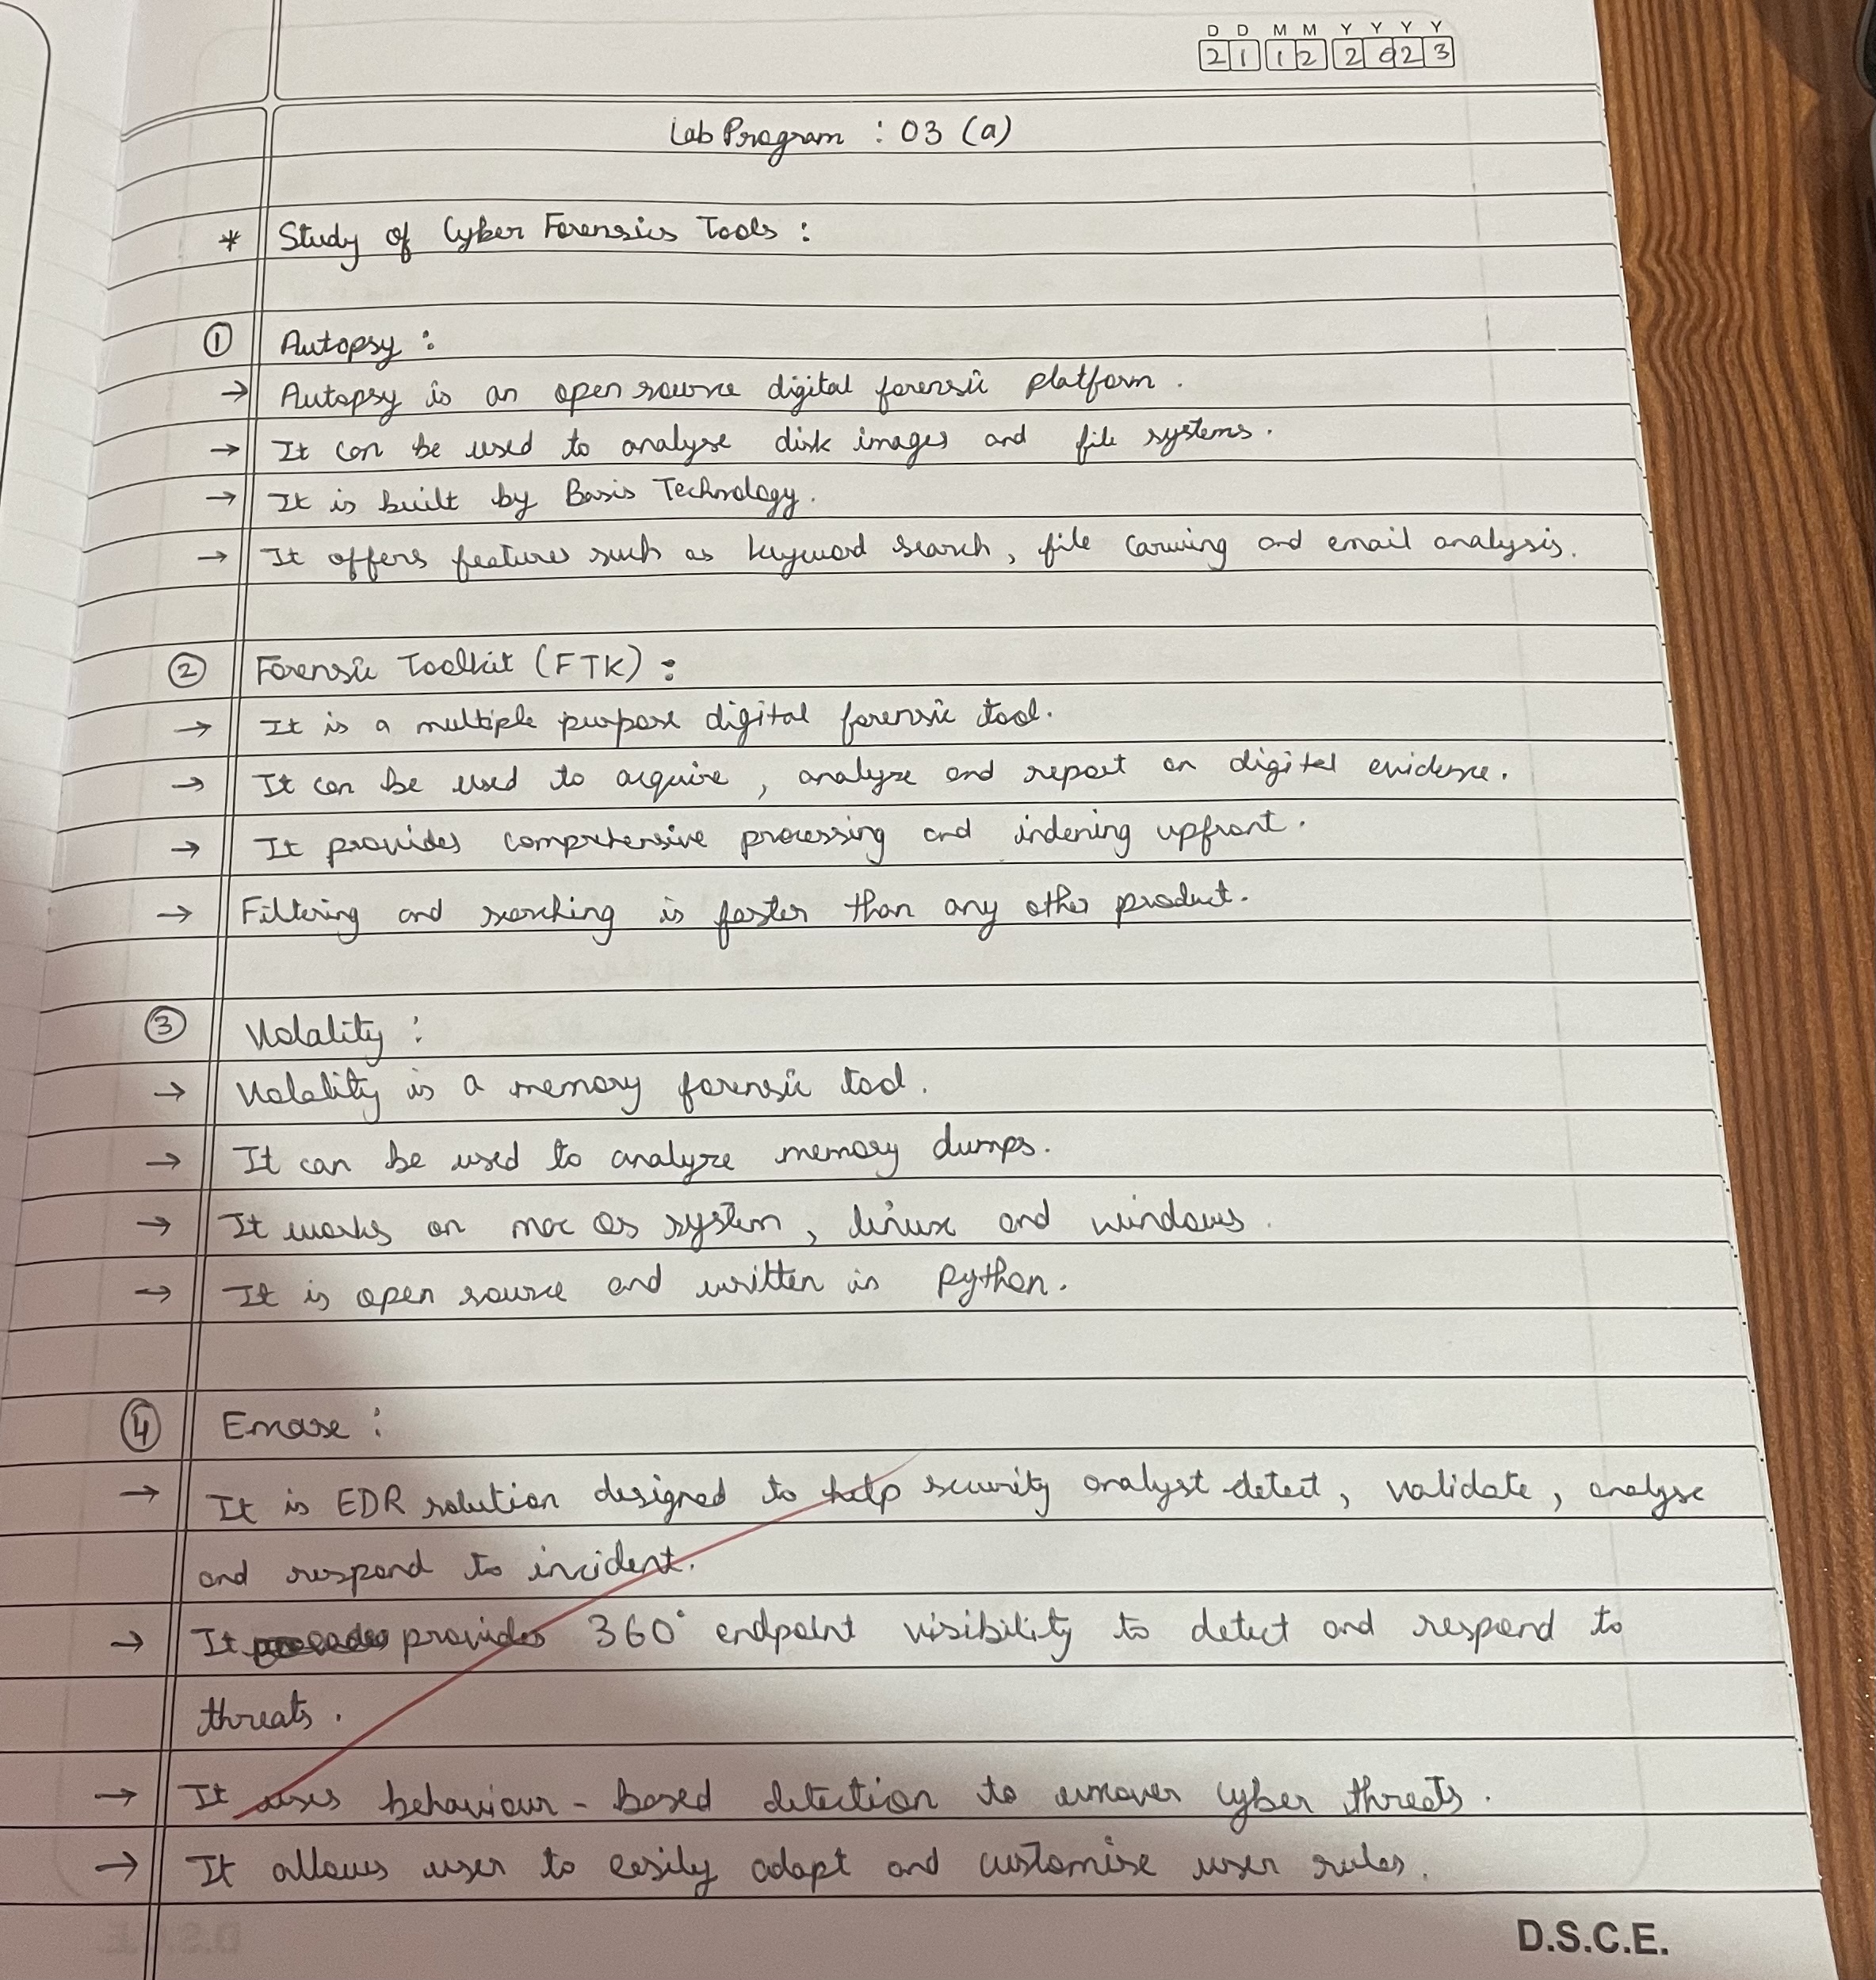 D D M M Y Y Y Y
2 1 1 2 2 0 2 3
Lab Program : 03 (a)
* Study of Cyber Forensics Tools :
① Autopsy :
→ Autopsy is an open source digital forensic platform .
→ It can be used to analyse disk images and file systems .
→ It is built by Basis Technology .
→ It offers features such as keyword search , file carving and email analysis .
② Forensic Toolkit (FTK) :
→ It is a multiple purpose digital forensic tool .
→ It can be used to acquire , analyze and report on digital evidence .
→ It provides comprehensive processing and indexing upfront .
→ Filtering and searching is faster than any other product .
③ Volality :
→ Volality is a memory forensic tool .
→ It can be used to analyze memory dumps .
→ It works on mac os system , linux and windows .
→ It is open source and written in Python .
④ Encase :
→ It is EDR solution designed to help security analyst detect , validate , analyse
and respond to incident .
→ It provides 360° endpoint visibility to detect and respond to
threats .
→ It uses behaviour - based detection to uncover cyber threats .
→ It allows user to easily adapt and customise user rules .
D.S.C.E.